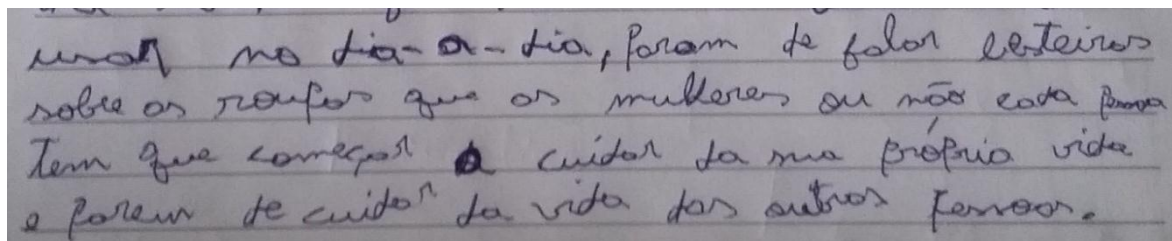 usar no dia-a-dia, param de falar besteiras
sobre as roupas que as mulheres ou não cada pessoa
Tem que começar a cuidar da sua própria vida
e parem de cuidar da vida das outras pessoas.